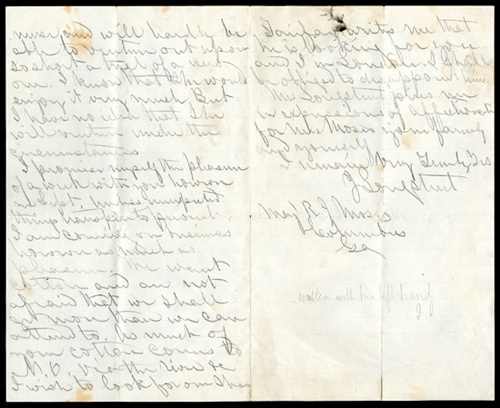 nurse and will hardly be
able to venture out upon
so short a trial of a new
one. I know that she would
enjoy it very much But
I have no idea that she
will venture under the
circumstances
I promise myself the pleasure
of a week with you
in Sept. unless unexpected
things transpire to prevent
I am coming on business
however as much as
pleasure. We want
cotton and am not
afraid that we shall
get more than we can
attend to. As much of
your cotton comes to
N.O. via the river &c
I wish to look for our share
Fairfax writes me that
he is looking for you
and I in London. I shall
be obliged to disappoint him
Mrs Longstreet joins me
in expressions of affectionate
for Mrs Moses your family
and yourself.
I remain Very Truly Yrs
J Longstreet
Maj R J Moses
Columbus
Ga
written with his left hand